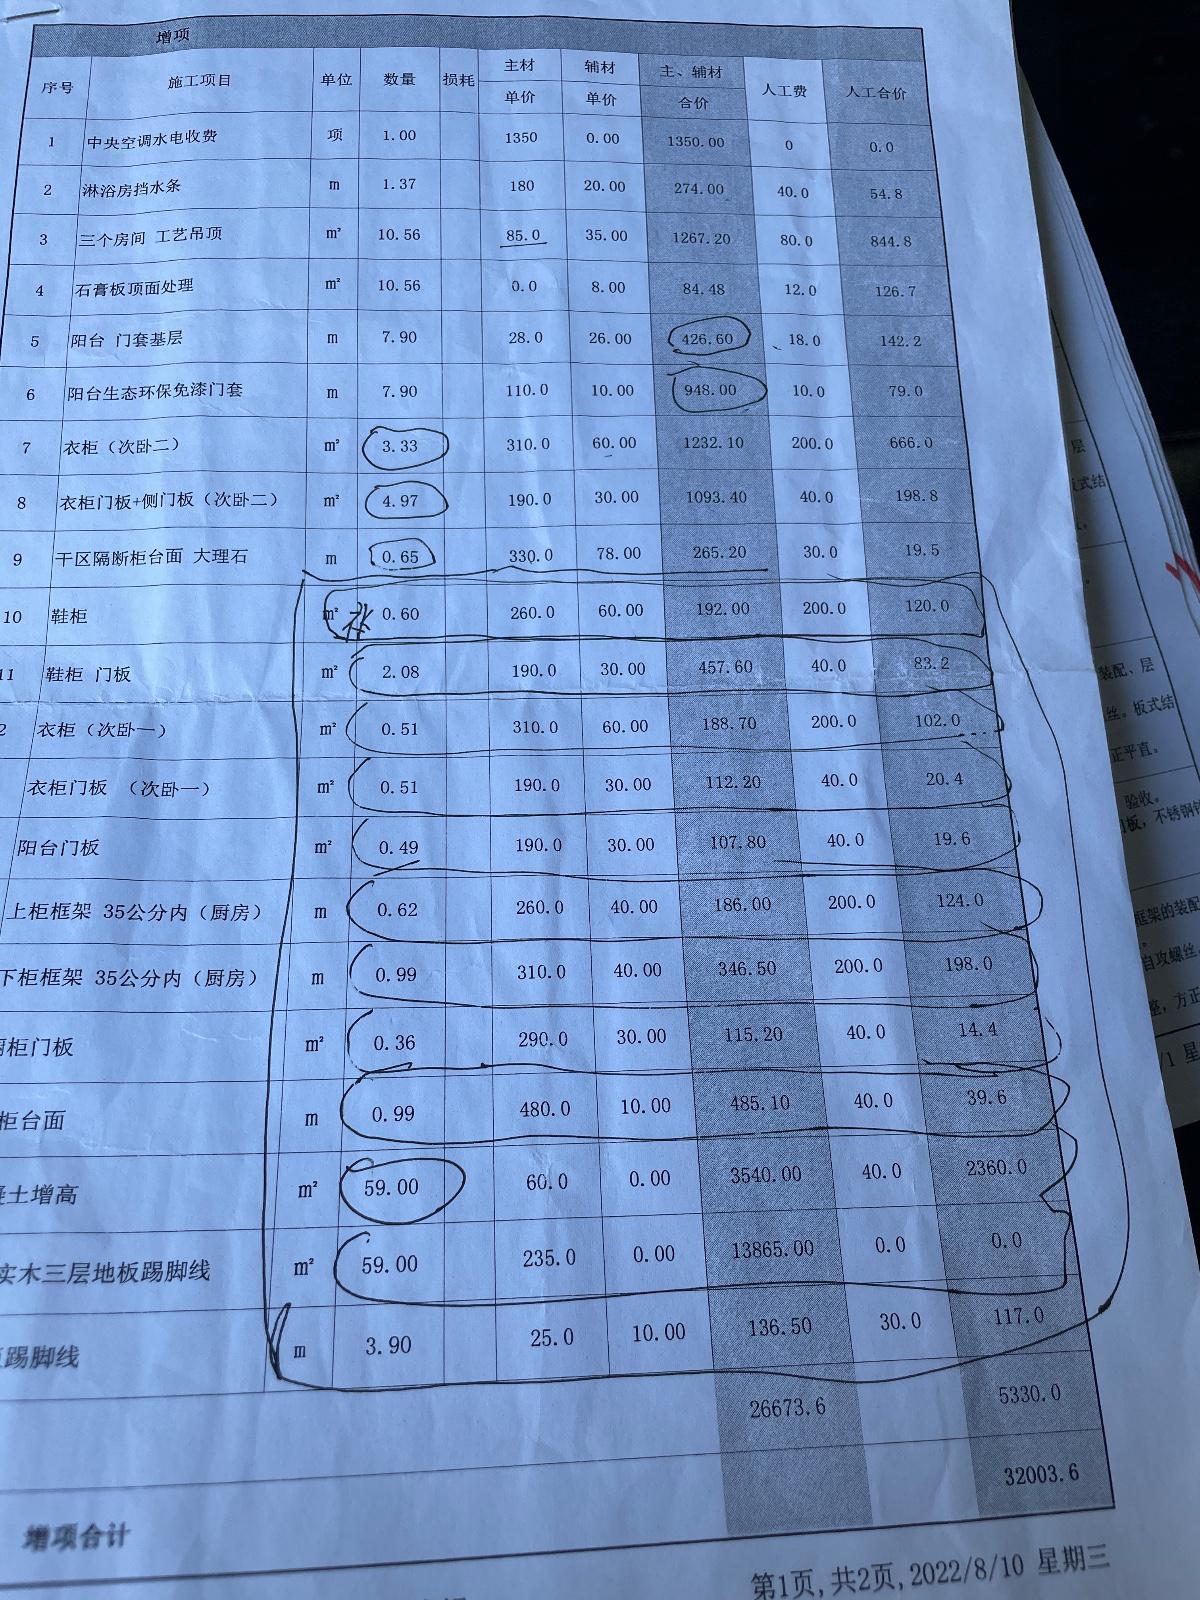 增项
序号 施工项目 单位 数量 损耗 主材 单价 辅材 单价 主、辅材 合价 人工费 人工合价
1 中央空调水电收费 项 1.00 1350 0.00 1350.00 0 0.0
2 淋浴房挡水条 m 1.37 180 20.00 274.00 40.0 54.8
3 三个房间 工艺吊顶 m² 10.56 85.0 35.00 1267.20 80.0 844.8
4 石膏板顶面处理 m² 10.56 0.0 8.00 84.48 12.0 126.7
5 阳台 门套基层 m 7.90 28.0 26.00 426.60 18.0 142.2
6 阳台生态环保免漆门套 m 7.90 110.0 10.00 948.00 10.0 79.0
7 衣柜（次卧二） m² 3.33 310.0 60.00 1232.10 200.0 666.0
8 衣柜门板+侧门板（次卧二） m² 4.97 190.0 30.00 1093.40 40.0 198.8
9 干区隔断柜台面 大理石 m 0.65 330.0 78.00 265.20 30.0 19.5
10 鞋柜 m² 0.60 260.0 60.00 192.00 200.0 120.0
11 鞋柜 门板 m² 2.08 190.0 30.00 457.60 40.0 83.2
2 衣柜（次卧一） m² 0.51 310.0 60.00 188.70 200.0 102.0
衣柜门板 （次卧一） m² 0.51 190.0 30.00 112.20 40.0 20.4
阳台门板 m² 0.49 190.0 30.00 107.80 40.0 19.6
上柜框架 35公分内（厨房） m 0.62 260.0 40.00 186.00 200.0 124.0
下柜框架 35公分内（厨房） m 0.99 310.0 40.00 346.50 200.0 198.0
柜门板 m² 0.36 290.0 30.00 115.20 40.0 14.4
柜台面 m 0.99 480.0 10.00 485.10 40.0 39.6
土增高 m² 59.00 60.0 0.00 3540.00 40.0 2360.0
实木三层地板踢脚线 m² 59.00 235.0 0.00 13865.00 0.0 0.0
踢脚线 m 3.90 25.0 10.00 136.50 30.0 117.0
26673.6 5330.0
32003.6
增项合计
第1页,共2页,2022/8/10 星期三
层
板式结
装配、层
丝。板式结
正平直。
验收。
门板，不锈钢
框架的装配
自攻螺丝
整，方正
/1 星